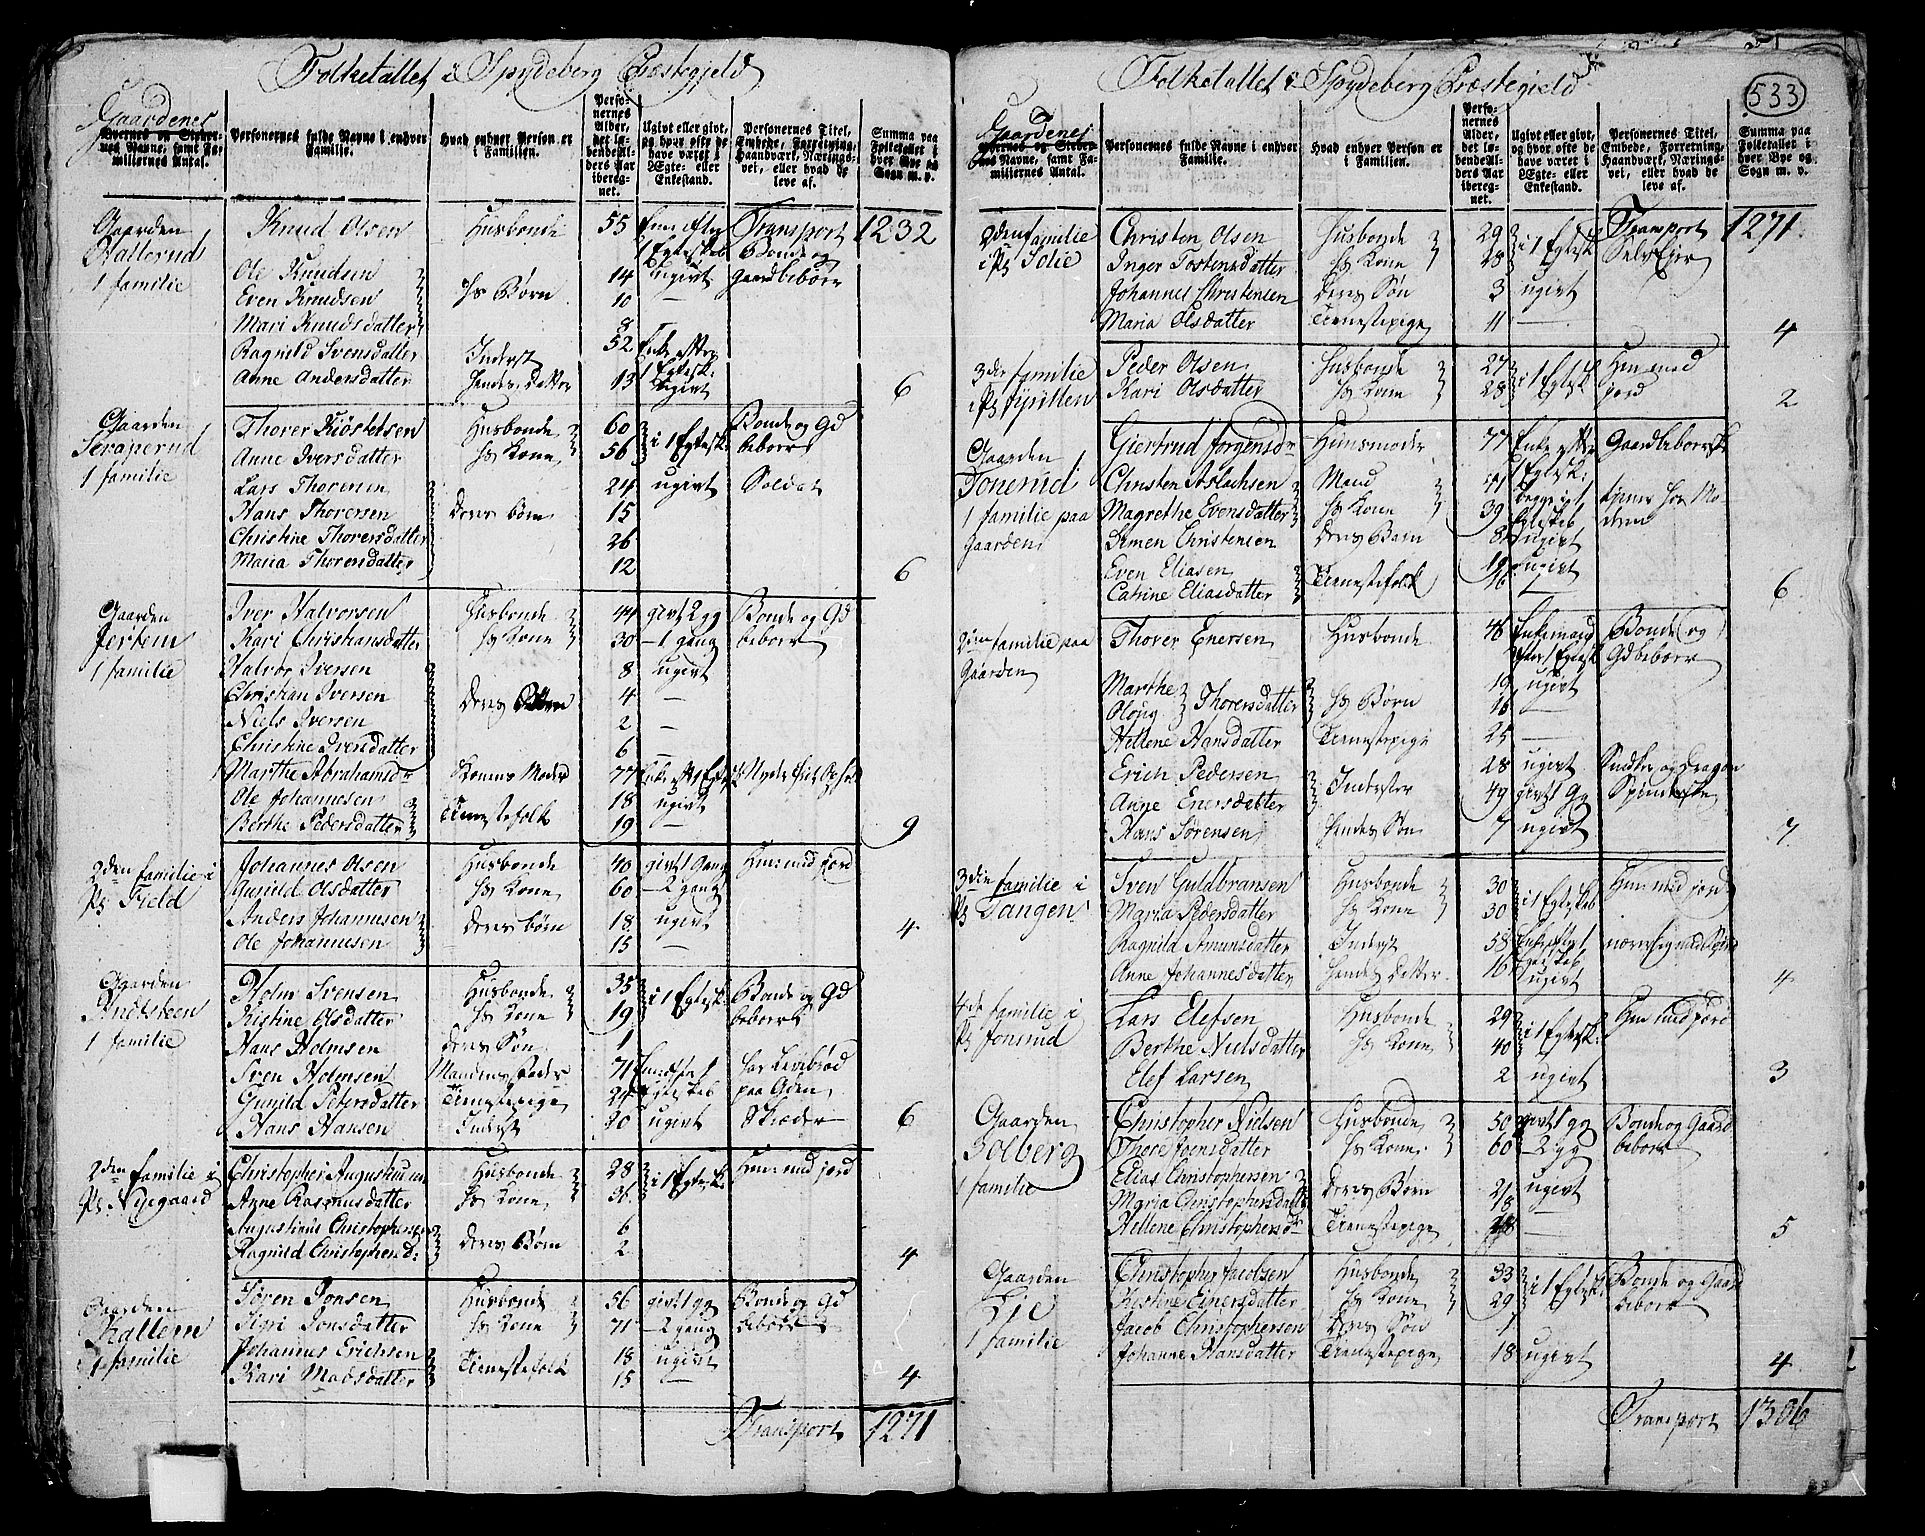 Folketallet i Spydeberg Præstegield
Gaardenes
Byernes og Stedernes Navne, samt Familiernes Antal.
Personernes fulde Navne i enhver Familie.
Hvad enhver Person er i Familien.
Personernes Alder, det løbende Alders Aar iberegnet.
Ugivt eller givt, og hvor ofte de have været i Ægte- eller Enkestand.
Personernes Titel, Embede, Forretning, Haandværk, Næringsvei, eller hvad de leve af.
Summa paa Folketallet i hver Bye og Sogn m. v.
Transport 1232
Gaarden
1 familie
Knud Olsen Husbonde 55 Bonde og Gaardbeboer
Ole Knudsen 14 ugivt
Even Knudsen hs Børn 10
Mari Knudsdatter 8
Ragnild Svensdatter Inderst 52
Anne Andersdatter hendes Datter 13 ugivt
6
Gaarden
1 familie
Thorer Kiøstelsen Husbonde 60 i 1 Egtesk. Bonde og Gd
Anne Iversdatter hs Kone 56 beboer
Lars Thorersen 24 ugivt Soldat
Hans Thorersen deres børn 15
Christine Thorersdatter 26
Maria Thorersdatter 12
6
Gaarden
1 familie
Iver Halvorsen Husbonde 44 givt 2 gg Bonde og Gd
Kari Christiansdatter hs Kone 30 — 1 gang beboer
Halvor Iversen 8 ugivt
Christian Iversen deres Børn 4 —
Niels Iversen 2 —
Christine Iversdatter 6 —
Marthe Abrahamsdr Konens Moder 77
Ole Johannesen Tienestefolk 18 ugivt
Berthe Pedersdatter 19 —
9
2den familie i
Pl: Field
Johannes Olsen Husbonde 40 givt 1 Gang Huusmd jord
Gunild Olsdatter hs Kone 60 — 2 gang
Anders Johannesen deres børn 18 ugivt
Ole Johannesen 15 —
4
Gaarden
1 familie
Holm Svensen Husbonde 35 i 1 Egtesk. Bonde og Gd
Kistine Olsdatter hs Kone 19 beboer
Hans Holmsen deres Søn 1
Sven Holmsen Mandens Fader 71
Gunild Petersdatter Tienestepige 24 paa Gden
Hans Hansen Inderst 20 ugivt Skræder
6
2den familie i
Pl: Nyegaard
Husbonde 28 i 1 Egtesk. Huusmd jord
Anne Rasmusdatter hs Kone 36
Augustinus Christophersen deres Børn 6
Ragnild Christophersd: 2
4
Gaarden
Kallem
1 familie
Søren Jonsen Husbonde 56 givt 1 gg Bonde og Gd
Sigri Jonsdatter hs Kone 71 — 2 gang beboer
Johannes Erichsen Tienestefolk 18 ugivt
Kari Madsdatter 15 —
4
Transport 1271
Folketallet i Spydeberg Præstegield
533
Gaardenes
Byernes og Stedernes Navne, samt Familiernes Antal.
Personernes fulde Navne i enhver Familie.
Hvad enhver Person er i Familien.
Personernes Alder, det løbende Alders Aar iberegnet.
Ugivt eller givt, og hvor ofte de have været i Ægte- eller Enkestand.
Personernes Titel, Embede, Forretning, Haandværk, Næringsvei, eller hvad de leve af.
Summa paa Folketallet i hver Bye og Sogn m. v.
Transport 1271
2den familie
i Pl: Solie
Christen Olsen Husbonde 29 i 1 Egtesk Selv Ejer
Inger Tostensdatter hs Kone 28
Johannes Christensen deres Søn 3 ugivt
Maria Olsdatter Tienestepige 11 —
4
3die familie
Peder Olsen Husbonde 27 i 1 Egtesk Huusmed
Kari Olsdatter hs Kone 28 jord
2
Gaarden
Tonerud
1 familie paa
Gaarden
Giertrud Jørgensdr Huusmoder 77
Christen Aslachsen Mand
Magrethe Evensdatter hs Kone 39
Simen Christensen deres Barn 8 ugivt
Even Eliasen Tienestefolk 19 ugivt
Catrine Eliasdatter 16 —
6
2den familie paa
Gaarden
Thorer Enersen Husbonde 48 Enkemand Bonde og
Gdbeboer
Marthe Thorersdatter hs Børn 19 ugivt
Oloug 16 —
Hellene Hansdatter Tienestepige 25 —
Erich Pedersen Inderster 28 ugivt Snedker og Dragon
Anne Enersdatter 49 givt 1 gg
Hans Sørensen hendes Søn 7 ugivt
7
3die familie i
Pl: Tangen
Sven Guldbransen Husbonde 30 i 1 Egteskab Huusmed jord
Maria Pedersdatter hs Kone 30
Ragnild Amunsdatter Inderst 58
Anne Johannesdatter hendes Datter 16 ugivt
4
4de familie i
Pl: Jonsrud
Lars Elefsen Husbonde 29 i 1 Egtesk: Huusmd jord
Berthe Nielsdatter hs Kone 40
Elef Larsen 2 ugivt
3
Gaarden
Solberg
1 familie
Christopher Nielsen Husbonde 50 givt 1 gg Bonde og Gaard
Thore Joensdatter hs Kone 60 — 2 gg beboer
Elias Christophersen deres Børn 21 ugivt
Maria Christophersdatter 18
Hellene Christophersdr Tienestepige —
5
Gaarden
Lie
1 familie
Christopher Jacobsen Husbonde 33 i 1 Egtesk: Bonde og Gaard
Kistine Einersdatter hs Kone 29 beboer
Jacob Christophersen deres Søn 1
Johanne Hansdatter Tienestepige 18 ugivt
4
Transport 1306